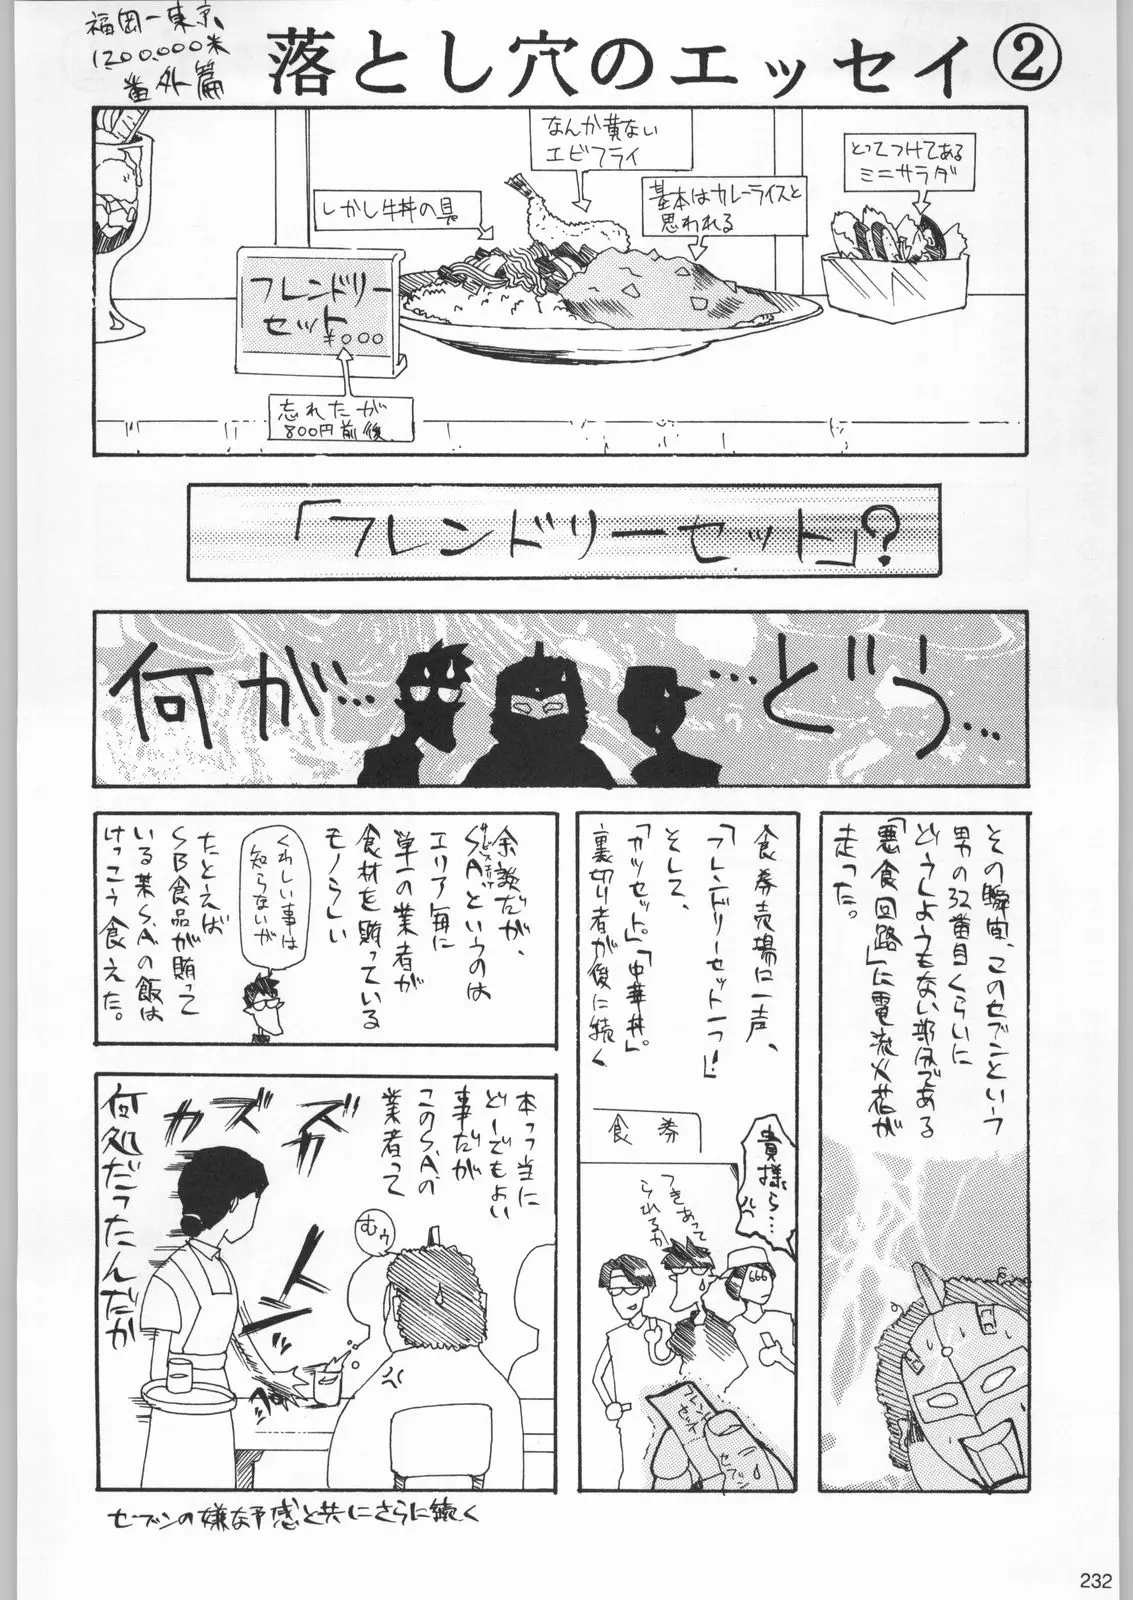 福岡ー東京
1200.000米
番外篇
落とし穴のエッセイ②
なんか貧ない
エビフライ
とってつけてある
ミニサラダ
しかし牛丼の具
基本はカレーライスと
思われる
フレンドリー
セット
¥000
忘れたが
800円前後
「フレンドリーセット」?
何が…
…どう…
その瞬間、このセブンという
男の32番目くらいに
どうしようもない部分である
「悪食回路」に電流火花が
走った。
食券売場に一声、
「フレンドリーセット一つ!」
そして、
「カツセット。」「中華丼。」
裏切り者が後に続く
食券
貴様ら…
つきあって
られるか
666
フレンド
セット
セブン
余談だが、
S.A
というのは
エリア毎に
単一の業者が
食材を賄っている
モノらしい
くわしい事は
知らないが
たとえば
SB食品が賄って
いる某S.A.の飯は
けっこう食えた。
本っ当に
どーでもよい
事だが
このS.A.の
業者って
むぅ
ズズズカ
何処だったんだか
セブンの嫌な予感と共にさらに続く
232